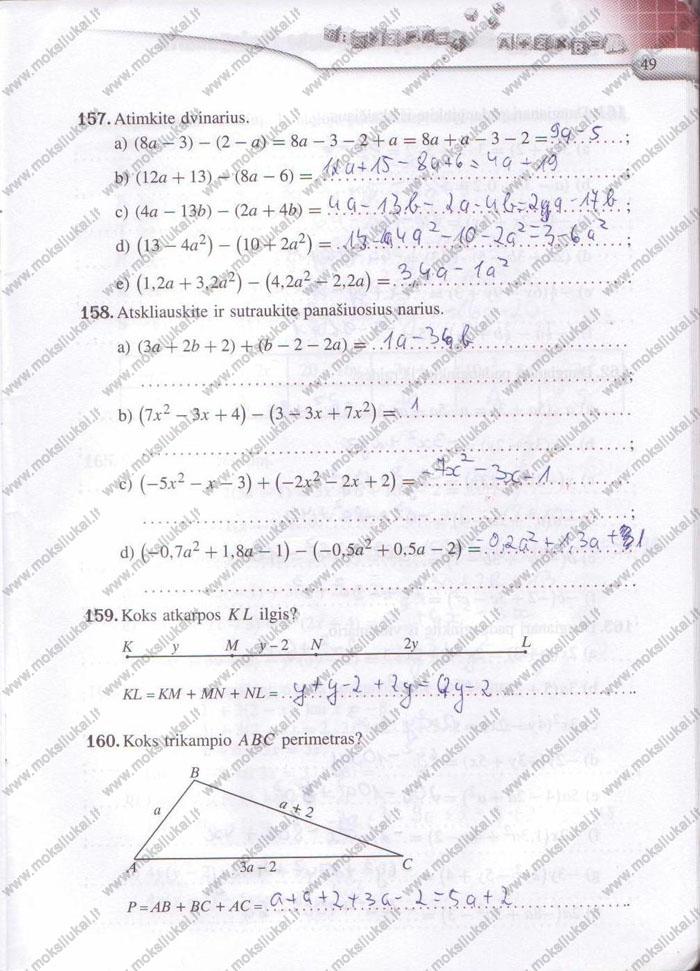 A + 2 × B =
49
157. Atimkite dvinarius.
a) (8a − 3) − (2 − a) = 8a − 3 − 2 + a = 8a + a − 3 − 2 = 9a − 5 ;
b) (12a + 13) − (8a − 6) = 12a + 15 − 8a + 6 = 4a + 19 ;
c) (4a − 13b) − (2a + 4b) = 4a − 13b − 2a − 4b = 2a − 17b ;
d) (13 − 4a²) − (10 + 2a²) = 13 − 4a² − 10 − 2a² = 3 − 6a²
e) (1,2a + 3,2a²) − (4,2a² − 2,2a) = 3,4a − 1a²
158. Atskliauskite ir sutraukite panašiuosius narius.
a) (3a + 2b + 2) + (b − 2 − 2a) = 1a − 3b
;
b) (7x² − 3x + 4) − (3 − 3x + 7x²) = 1
;
c) (−5x² − x − 3) + (−2x² − 2x + 2) = −7x² − 3x − 1
;
d) (−0,7a² + 1,8a − 1) − (−0,5a² + 0,5a − 2) = −0,2a² + 1,3a + 1
159. Koks atkarpos KL ilgis?
K y M y − 2 N 2y L
KL = KM + MN + NL = y + y − 2 + 2y = y − 2
160. Koks trikampio ABC perimetras?
B
a a + 2
A 3a − 2 C
P = AB + BC + AC = a + a + 2 + 3a − 2 = 5a + 2
www.moksliukai.lt